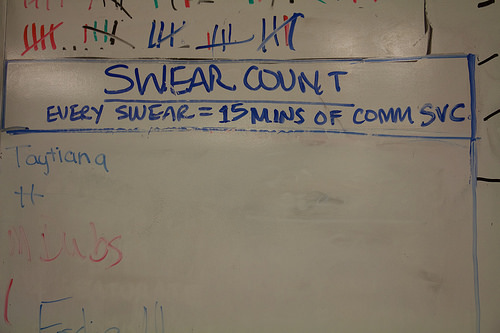 SWEAR COUNT
EVERY SWEAR = 15 MINS OF COMM SVC
Taytiana